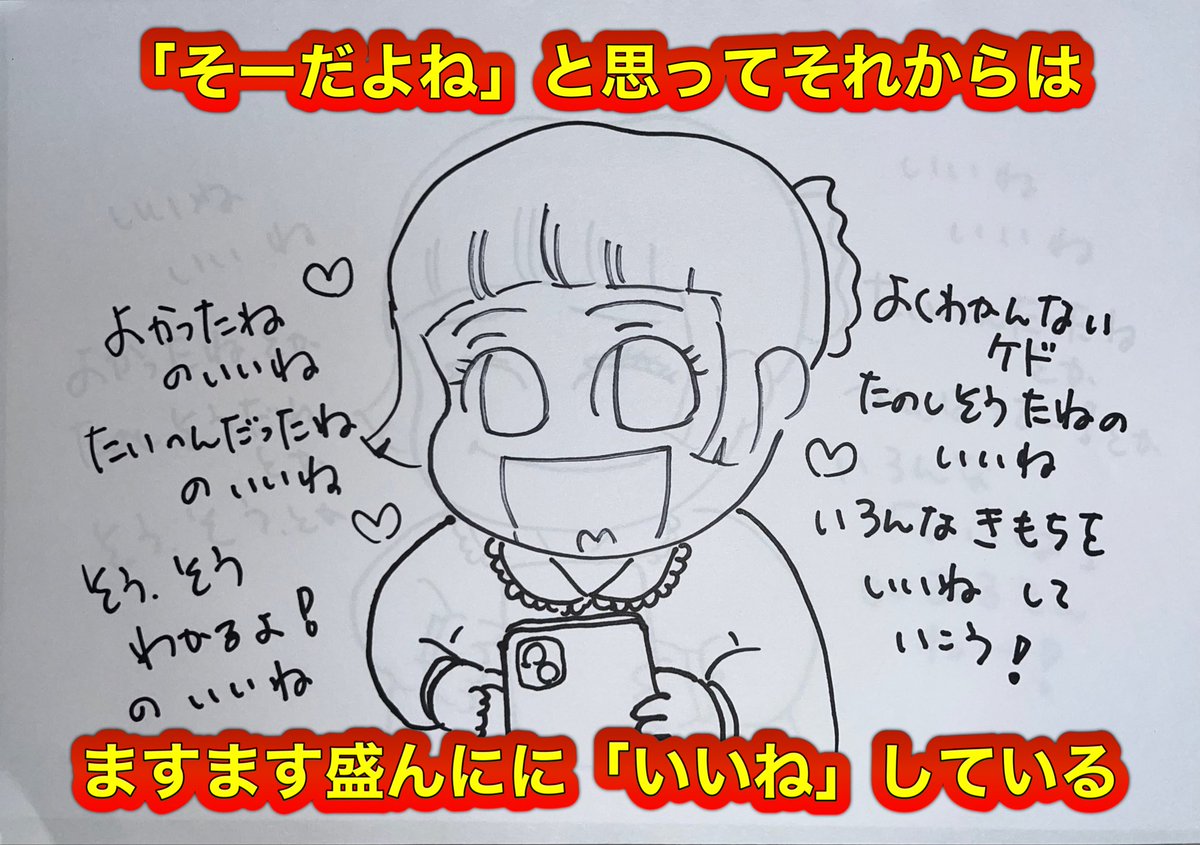 「そーだよね」と思ってそれからは
よかったね
のいいね
たいへんだったね
のいいね
そう、そう
わかるよ!
のいいね
よくわかんない
ケド
たのしそうだねの
いいね
いろんなきもちを
いいねして
いこう!
ますます盛んにに「いいね」している